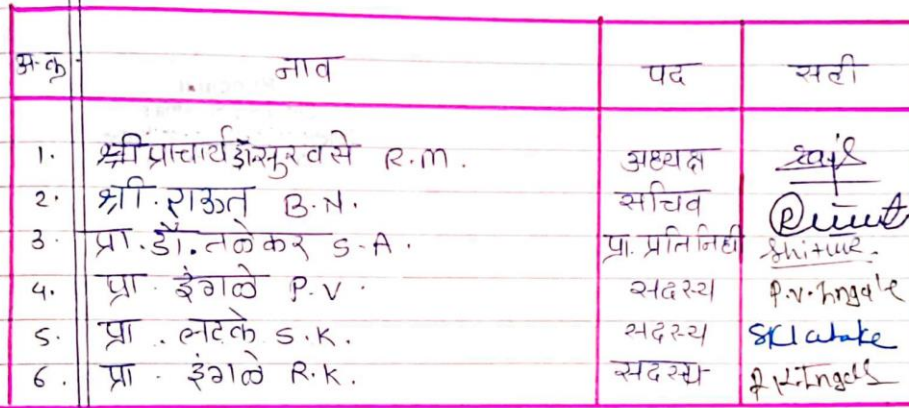 अ.क्र नाव पद सही
1. श्री प्राचार्य डॉ.सुरवसे R.M. अध्यक्ष
2. श्री. राऊत B.N. सचिव
3. प्रा.डॉ.तळेकर S.A. प्रा. प्रतिनिधी
4. प्रा. इंगळे P.V. सदस्य P.V.Ingale
5. प्रा. लटके S.K. सदस्य SKLatake
6. प्रा. इंगळे R.K. सदस्य R.K.Ingale